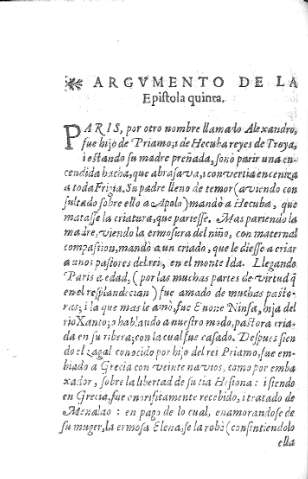 ARGVMENTO DE LA
Epistola quinta.
PARIS, por otro nombre llamado Alexandro,
fue hijo de Priamo, i de Hecuba reyes de Troya,
i estando su madre preñada, soñó parir una en-
cendida hacha, que abrasava, i convertia en ceniza
a toda Frigia. Su padre lleno de temor (aviendo con
sultado sobre ello a Apolo) mandò a Hecuba, que
matasse la criatura, que pariesse. Mas pariendo la
madre, viendo la ermosura del niño, con maternal
compassion, mandò a un criado, que le diesse a criar
a unos pastores del rei, en el monte Ida. Llegando
Paris a edad, (por las muchas partes de virtud q̃
en el resplandecian) fue amado de muchas pasto-
ras; i la que mas le amò, fue Enone Ninfa, hija del
rio Xanto; o hablando a nuestro modo, pastora cria-
da en su ribera; con la qual fue casado. Despues sien
do el zagal conocido por hijo del rei Priamo, fue em
biado a Grecia con veinte navios, como por emba
xador, sobre la libertad de su tia Hesiona: i siendo
en Grecia, fue onrosissimamente recebido, i tratado de
Menalao: en pago de lo cual, enamorandose de
su muger, la ermosa Elena, se la robò (consintiendolo
ella